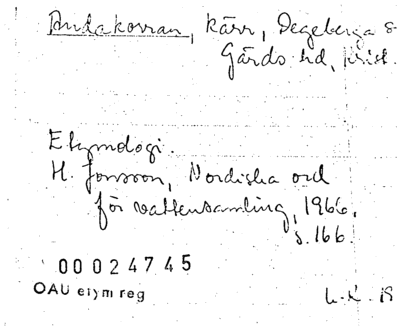 Andakorran, kärr, Degeberga s
Gärds hd, Krist.
Etymologi.
H. Jonsson, Nordiska ord
för vattensamling, 1966,
s. 166.
00024745
OAU etym reg